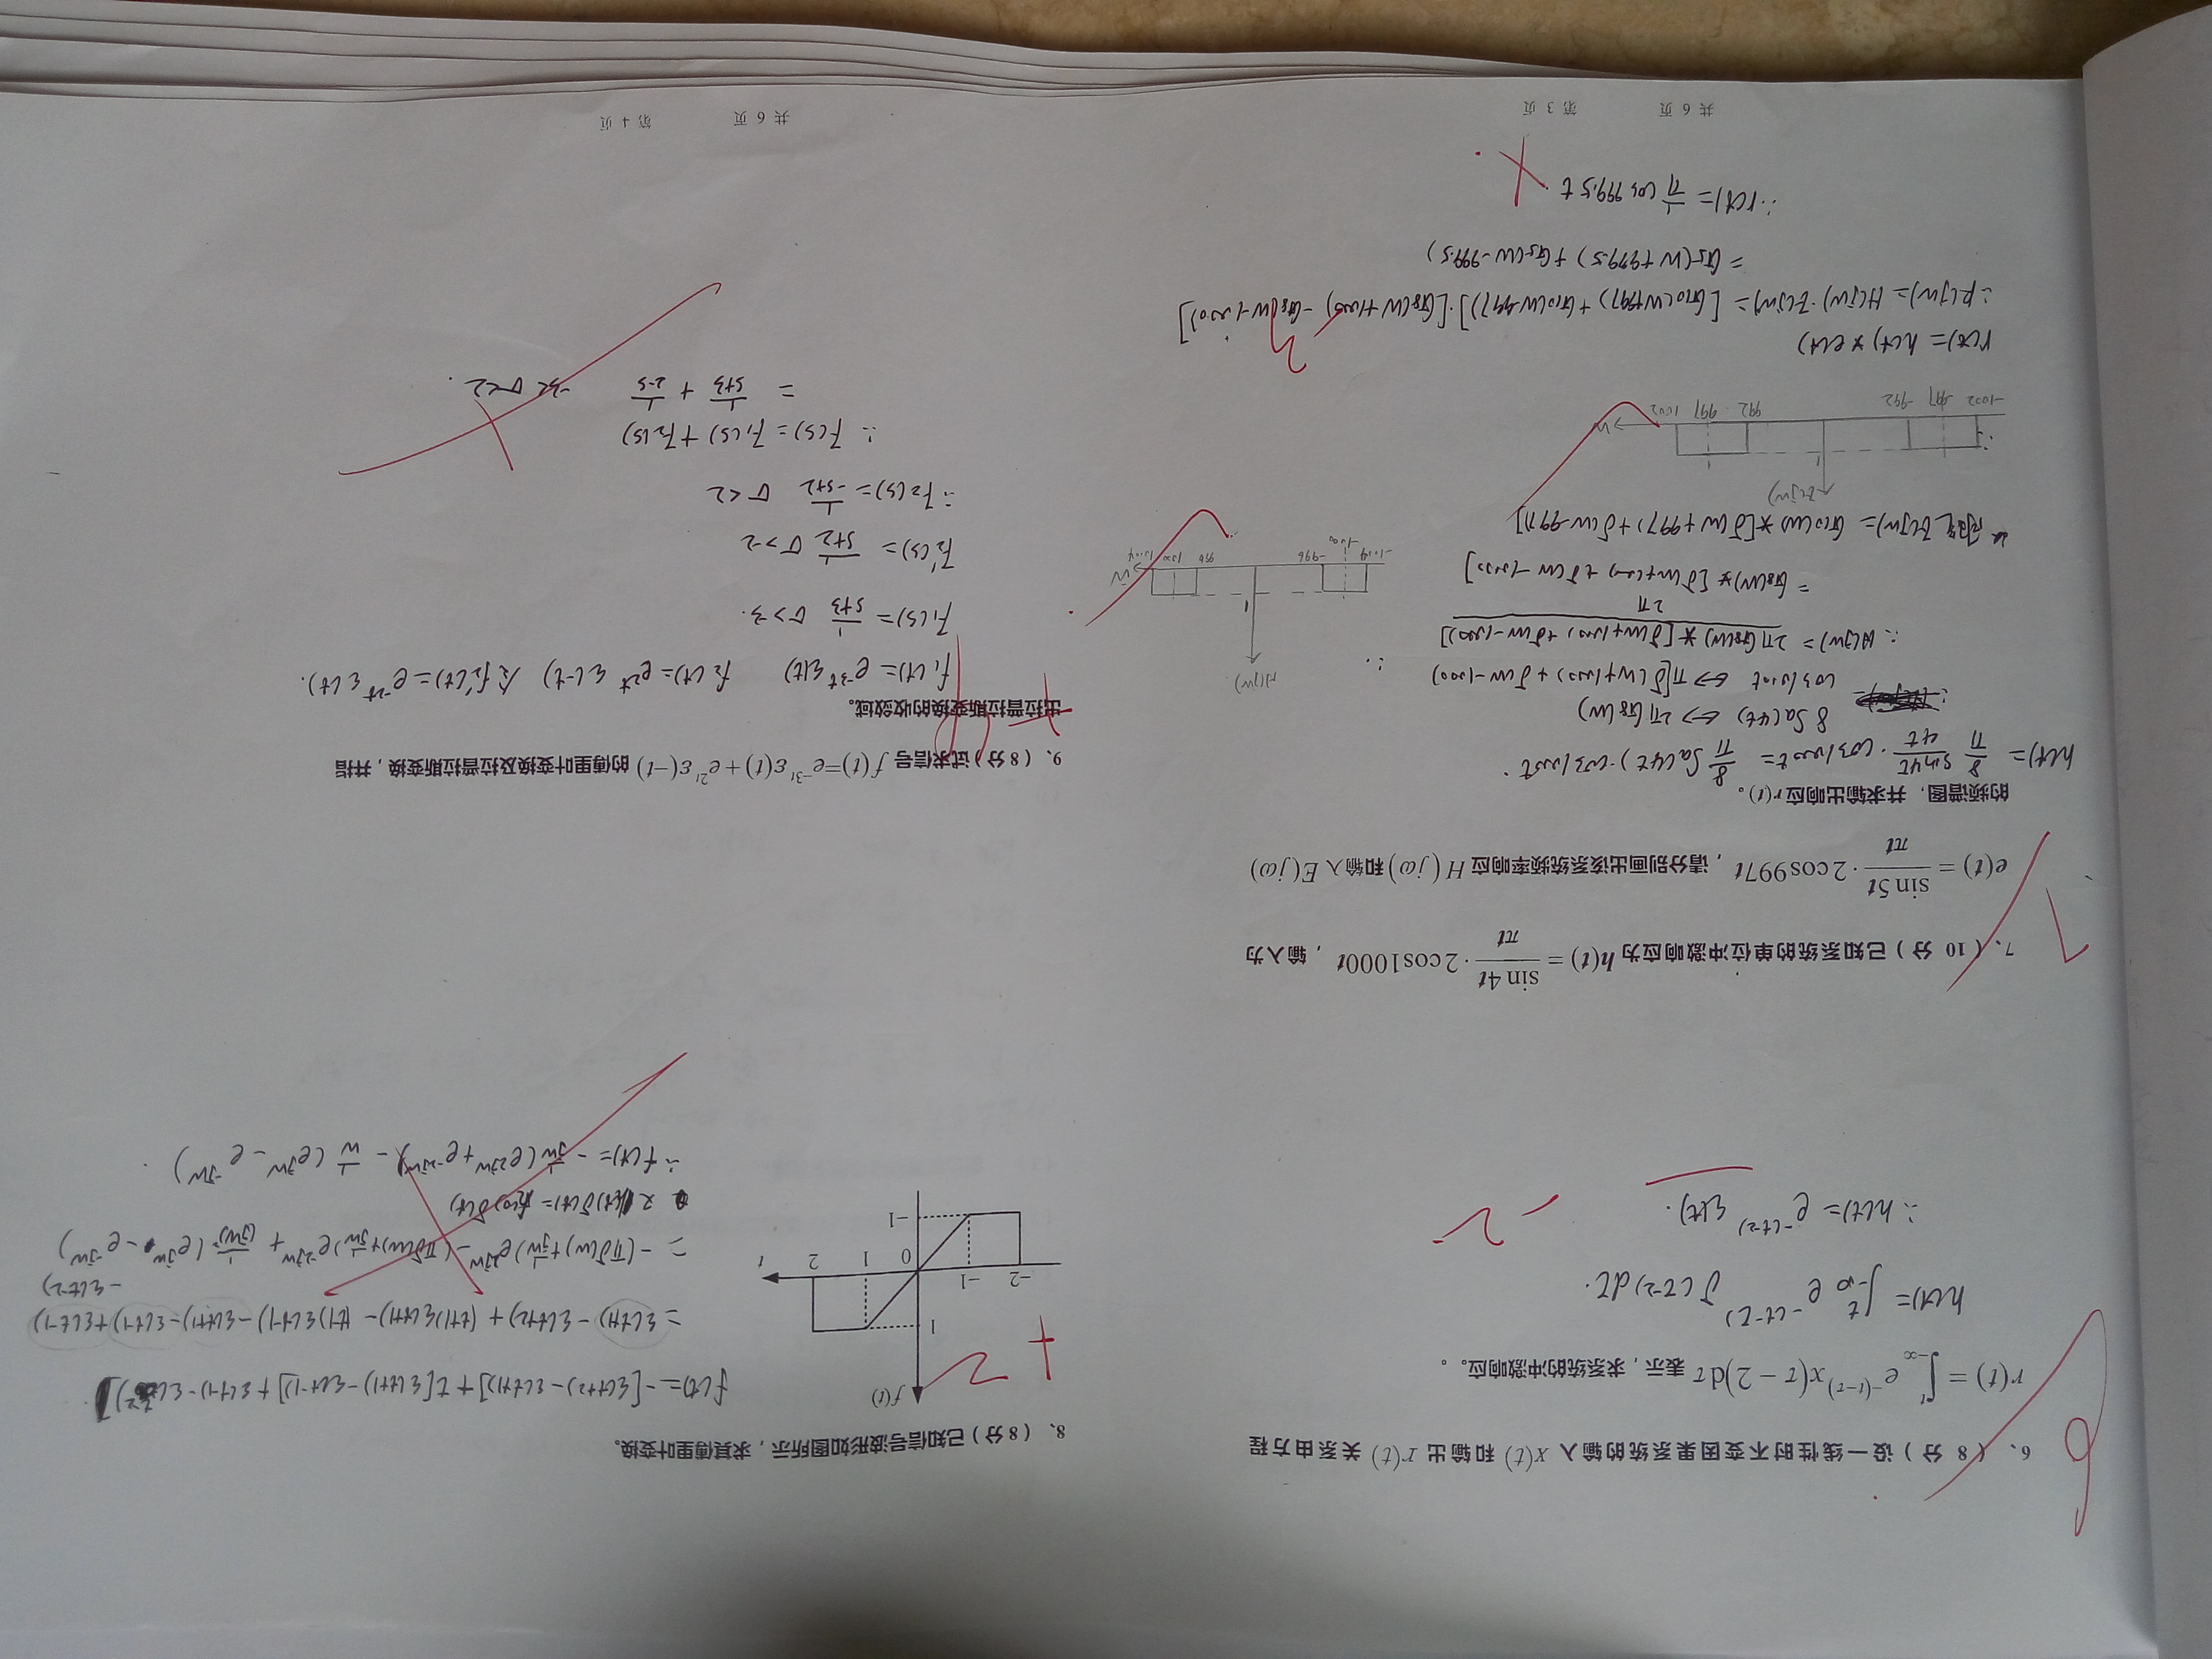 6
6、（8 分）设一线性时不变因果系统的输入 x(t) 和输出 r(t) 关系由方程
r(t) = ∫_{-∞}^{t} e^{-(t-τ)} x(τ-2)dτ 表示，求系统的冲激响应。。
h(t)= ∫_{-∞}^{t} e^{-(t-τ)} δ(τ-2)dτ.
∴ h(t)= e^{-(t-2)} ε(t).
-2
7
7、（10 分）已知系统的单位冲激响应为 h(t) = sin 4t/πt · 2cos1000t ，输入为
e(t) = sin 5t/πt · 2cos997t ，请分别画出该系统频率响应 H(jω) 和输入 E(jω)
的频谱图，并求输出响应 r(t)。
h(t)= 8/π sin4t/4t · cos1000t = 8/π Sa(4t)·cos1000t.
8 Sa(4t) ↔ 2πG8(w)
cos1000t ↔ π[δ(w+1000)+δ(w-1000)]
∴ H(jw)= 2πG8(w)*[δ(w+1000)+δ(w-1000)]/2π
= G8(w)*[δ(w+1000)+δ(w-1000)]
∴
H(jw)
1
w
-1004 -1000 -996 996 1000 1004
同理 E(jw)= G10(w)*[δ(w+997)+δ(w-997)]
E(jw)
1
w
-1002 -997 -992 992 997 1002
r(t)= h(t)*e(t)
-3
∴R(jw)= H(jw)·E(jw)= [G10(w+997)+G10(w-997)]·[G8(w+1000)-G8(w-1000)]
= G5(w+999.5)+G5(w-999.5)
∴r(t)= 1/π cos 999.5t
共 6 页 第 3 页
8、（8分）已知信号波形如图所示，求其傅里叶变换。
+2
f(t)
1
-2 -1 0 1 2 t
-1
f(t)= -[ε(t+2)-ε(t+1)]+t[ε(t+1)-ε(t-1)]+ε(t-1)-ε(t-2)]
= ε(t+1)-ε(t+2)+(t+1)ε(t+1)-(t-1)ε(t-1)-ε(t+1)-ε(t-1)+ε(t-1)
-ε(t-2)
= -(πδ(w)+1/jw)e^{2jw}-(πδ(w)+1/jw)e^{-2jw}+1/(jw)²(e^{jw}-e^{-jw})
又f(t)δ(t)=f(0)δ(t)
∴ f(t)= -1/jw(e^{2jw}+e^{-2jw})-1/w(e^{jw}-e^{-jw}).
9、（8分）试求信号 f(t)=e^{-3t}ε(t)+e^{2t}ε(-t) 的傅里叶变换及拉普拉斯变换，并指
出拉普拉斯变换的收敛域。
f₁(t)= e^{-3t}ε(t) f₂(t)= e^{2t}ε(-t) 令f₂'(t)= e^{-2t}ε(t).
F₁(s)= 1/s+3 σ>-3.
F₂'(s)= 1/s+2 σ>-2
∴F₂(s)= 1/-s+2 σ<2
∴ F(s)= F₁(s)+F₂(s)
= 1/s+3 + 1/2-s -3<σ<2.
共 6 页 第 4 页